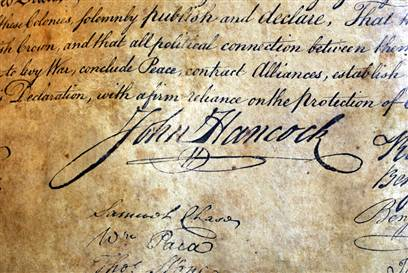 these Colonies, solemnly publish and declare, That
Crown, and that all political connection between them
to levy War, conclude Peace, contract Alliances, establish
Declaration, with a firm reliance on the protection of
John Hancock
Samuel Chase
Wm. Paca
Thos. Stone
Ben
Benj